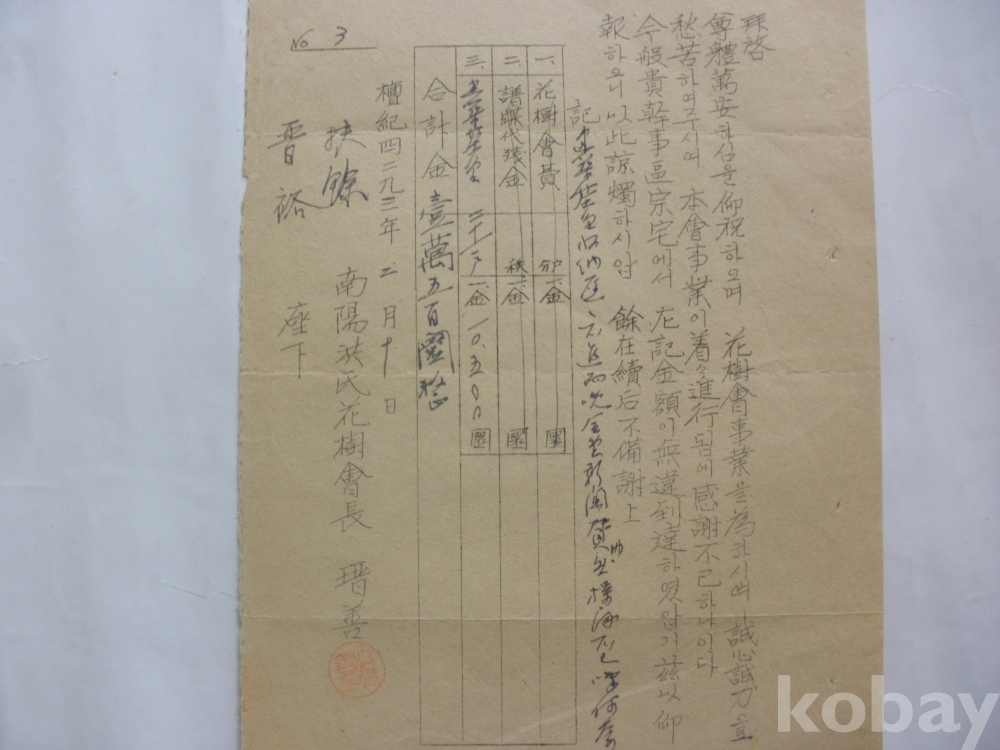 拜啓
尊體萬安하심을 仰祝하오며 花樹會事業을 爲하시여 誠心誠力을
愁苦하여주시여 本會事業이 着々進行됨에 感謝不已하나이다
今般貴幹事區宗宅에서 左記金額이 無違到達하였압기 玆以仰
報하오니 以此諒燭하시압 餘在續后不備謝上
記
一、花樹會費 金 圜
二、譜牒代殘金 秩 金 圜
三、 金 一〇.五〇〇 圜
合計金 壹萬五百圜整
檀紀四二九三年 二月 十日
南陽洪氏花樹會長 瑨善
扶餘
晋裕 座下
No 3
kobay